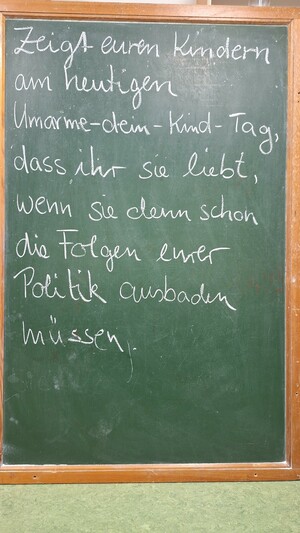 Zeigt euren Kindern
am heutigen
Umarme-dein-Kind-Tag,
dass ihr sie liebt,
wenn sie denn schon
die Folgen eurer
Politik ausbaden
müssen.